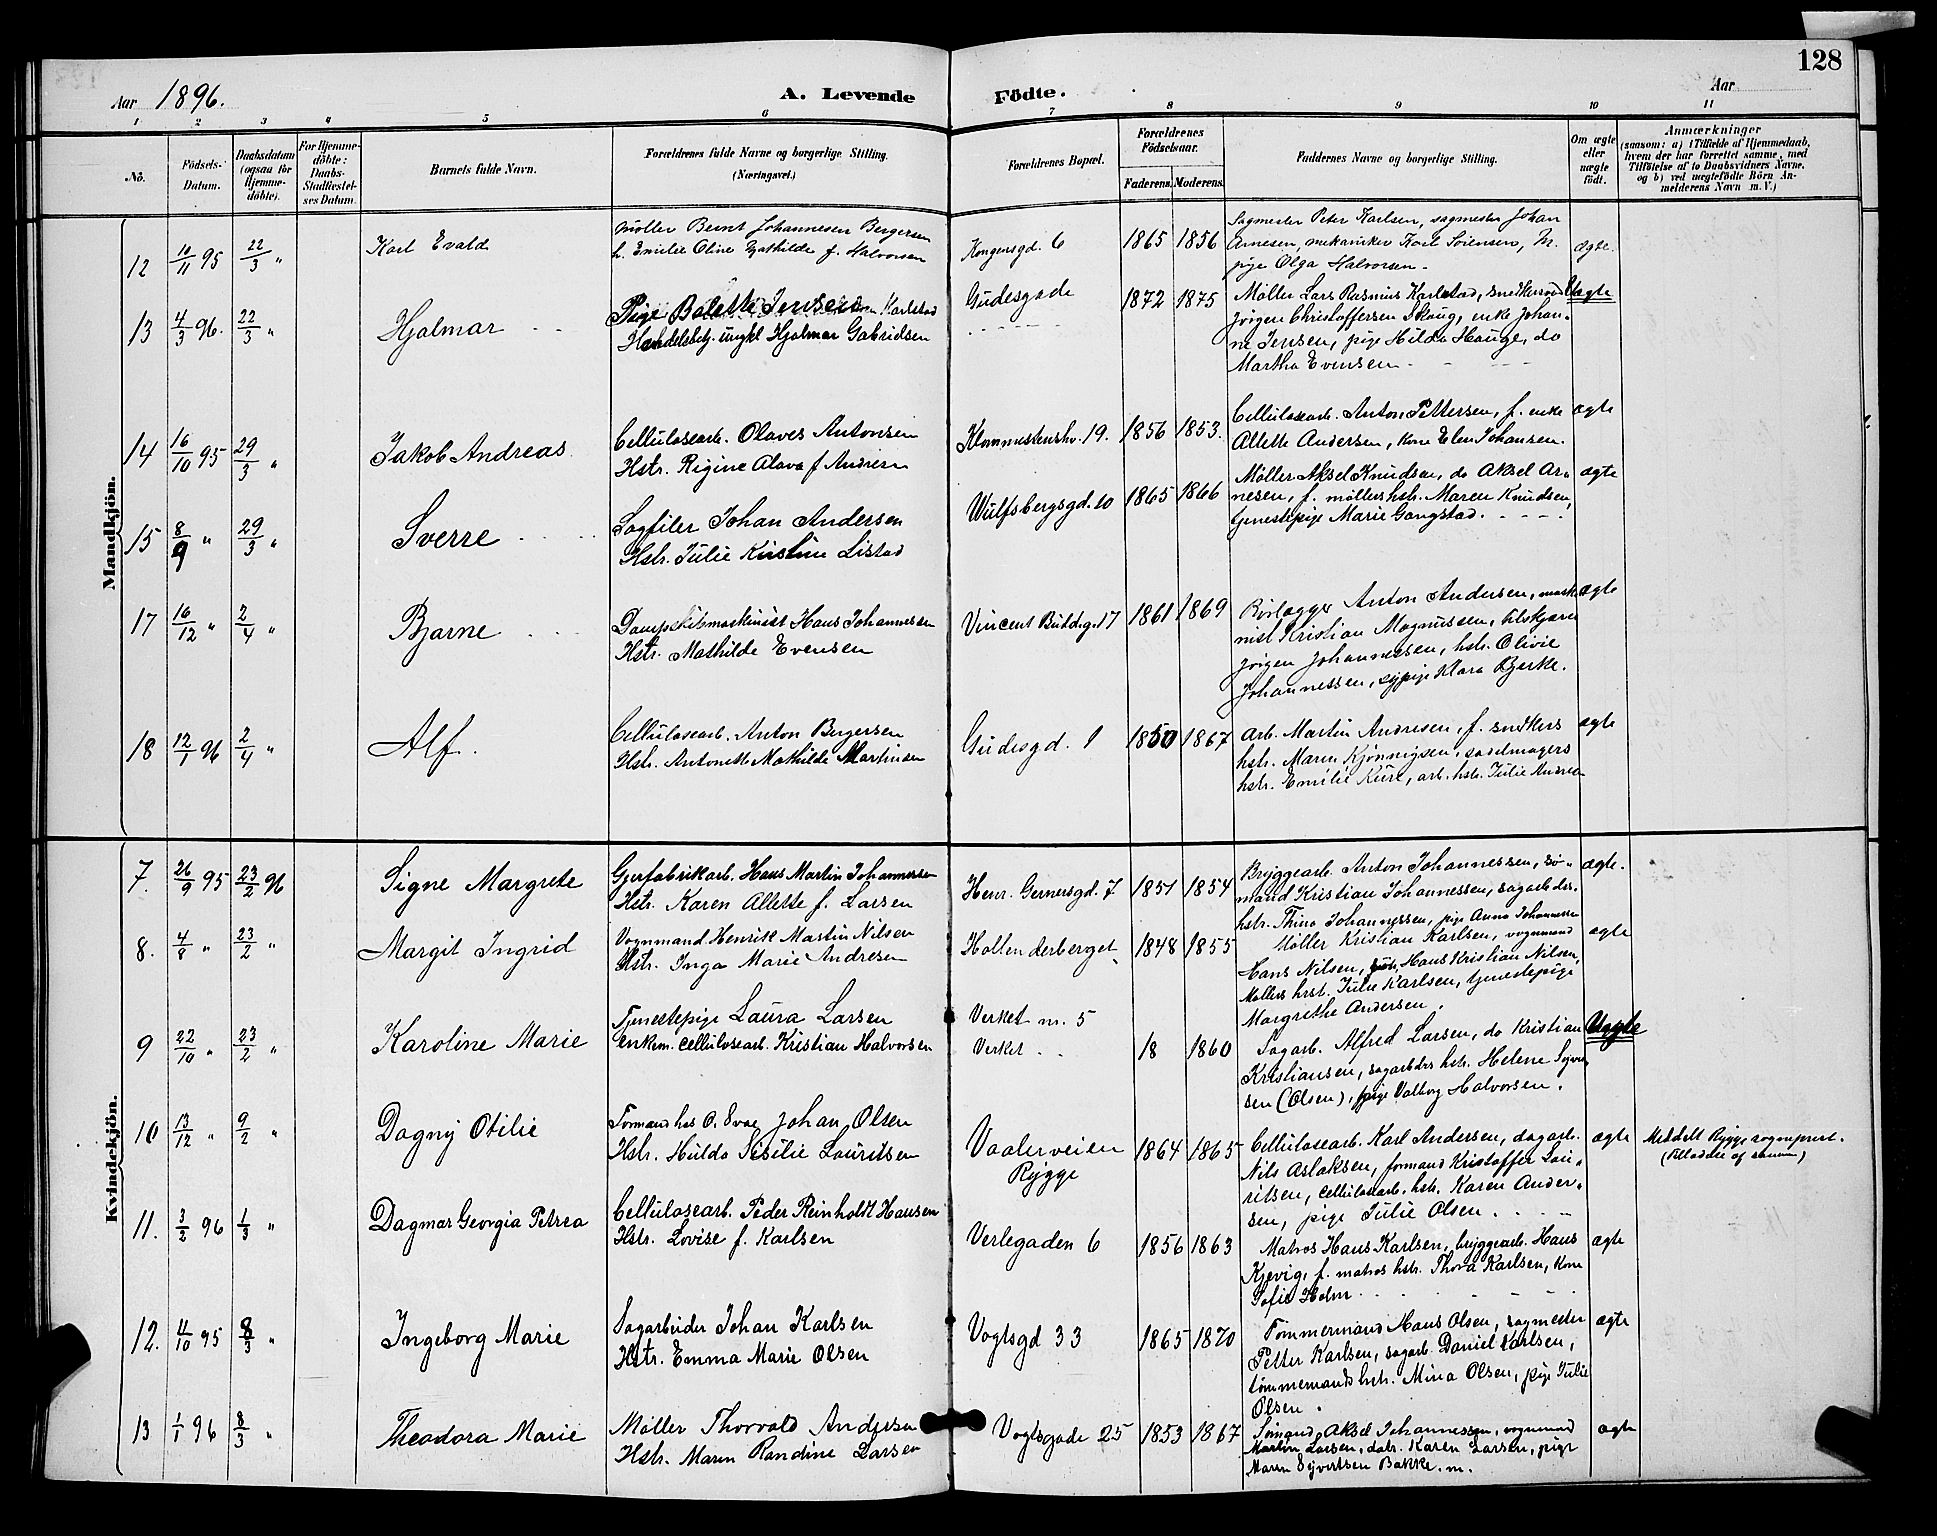 128
Aar 1896.
A. Levende Födte.
Aar
1 2 3 4 5 6 7 8 9 10 11
Nô.
Födsels-Datum.
Daabsdatum (ogsaa for Hjemme-döbte).
For Hjemme-döbte: Daabs-Stadfæstel-ses Datum.
Barnets fulde Navn.
Forældrenes fulde Navne og borgerlige Stilling. (Næringsvei.)
Forældrenes Bopæl.
Forældrenes Födselsaar.
Faderens. Moderens.
Faddernes Navne og borgerlige Stilling.
Om ægte eller uægte födt.
Anmærkninger
(saasom: a) i Tilfælde af Hjemmedaab, hvem der har forrettet samme, med Tilföielse af to Daabsvidners Navne, og b) ved uægtefödte Börn An-melderens Navn m. V.)
Mandkjön.
12 10/11 95 22/3 " Karl Evald
Møller Bernt Johannesen Bergersen
h. Emilie Oline Mathilde f. Halvorsen
Kongensgd. 6 1865 1856
Sagmester Peter Karlsen, sagmester Johan
Arnesen, mekaniker Karl Sørensen,
pige Olga Halvorsen.
ægte.
13 4/3 96. 22/3 " Hjalmar
Pige Balette Jensen Karlstad
Handelsbetj. ungkl Hjalmar Gabrielsen
Gudesgade 1872 1875
Møller Lars Rasmus Karlstad, snedkersvend
Jørgen Christoffersen Skaug, enke Johan-
ne Jensen, pige Hilda Hauge, do
Martha Evensen
Uægte
14 16/10 95 29/3 " Jakob Andreas
Cellulosearb. Olaves Antonsen
Hstr. Rigine Olava f Andersen
19. 1856 1853.
Cellulosearb. Anton Pettersen, f. enke
Allette Andersen, kone Elen Johansen.
ægte
15 8/9 " 29/3 " Sverre
Sagfiler Johan Andersen
Hstr. Julie Kirstine Listad
Wulfsbergsgd. 10 1865 1866
Møller Aksel Knudsen, do Aksel Ar-
nesen, f. møllers hstr. Maren Knudsen,
tjenestepige Marie Gangstad.
ægte
17 16/12 " 2/4 " Bjarne
Dampskibsmaskinist Hans Johannessen
Hstr. Mathilde Evensen
Vincent Buddg. 17 1861 1869
Rørlægger Anton Andersen, maski-
nist Kristian Magnussen,
Jørgen Johannessen, hstr. Olivie
Johannessen, sypige Klara Bjerke.
ægte
18 12/1 96 2/4 " Alf.
Cellulosearb. Anton Bergersen
Hstr. Antonette Mathilde Martinsen
Gudesgd. 1 1850 1867
Arb. Martin Andresen, f. snedkers
hstr. Maren Kjønnigsen, sadelmagers
hstr. Emilie Kure, arb. hstr. Julie Andresen
ægte
Kvindekjön.
7. 26/9 95 23/2 96 Signe Margrete
Gjerfabrikarb. Hans Martin Johannessen
Hstr. Karen Allette f. Larsen
Henr. Gernersgd. 7 1851 1854
Bryggearb. Anton Johannessen, sø-
mand Kristian Johannessen, sagarbdrs.
hstr. Thina Johannessen, pige Anna Johannessen
ægte.
8. 4/8 " 23/2 " Margit Ingrid
Vognmand Henrik Martin Nilsen
Hstr. Inga Marie Andresen
Hollenderberget 1848 1855
Møller Kristian Karlsen, vognmand
Hans Nilsen, Hans Kristian Nilsen,
Møllers hstr. Julie Karlsen, tjenestepige
Margrethe Andersen.
ægte
9 22/10 " 23/2 " Karoline Marie
Tjenestepige Laura Larsen
Enkem. Cellulosearb. Kristian Halvorsen
Verket m. 5
Verket 18 1860
Sagarb. Alfred Larsen, do Kristian
Kristiansen, sagarbdrs hstr. Helene Syver-
sen (Olsen), pige Valborg Halvorsen.
Uægte
10 13/12 " 9/2 " Dagny Otilie
Formand hos Johan Olsen
Hstr. Hulda Sesilie Lauritsen
Vaalerveien
Rygge
1864 1865
Cellulosearb. Karl Andersen, dagarb.
Nils Aslaksen, formand Kristoffer Lau-
ritsen, cellulosearb. hstr. Karen Ander-
sen, pige Julie Olsen.
ægte
Meddelt Rygge sogneprest.
(Tilladelse af samme)
11. 3/2 96 1/3 " Dagmar Georgia Petrea
Cellulosearb. Peder Reinholdt Hansen
Hstr. Lovise f. Karlsen
Verlegaden 6 1856 1863
Matros Hans Karlsen, bryggearb. Hans
Kjevig, f. matros hstr. Thora Karlsen, kone
Sofie Holm
ægte
12. 11/10 95 8/3 " Ingeborg Marie
Sagarbeider Johan Karlsen
Hstr. Emma Marie Olsen
Vogtsgd 33 1865 1870
Tømmermand Hans Olsen, sagmester
Petter Karlsen, sagarb. Daniel Karlsen,
tømmermands hstr. Mina Olsen, pige Julie
Olsen.
ægte
13 1/1 96 8/3 " Theodora Marie
Møller Thorvald Andersen
Hstr. Maren Randine Larsen
Vogtsgade 25 1853 1867
Sømand Aksel Johannessen, vognmand
Martin Larsen, datr. Karen Larsen, pige
Maren Syvertsen Bakke. m.
ægte